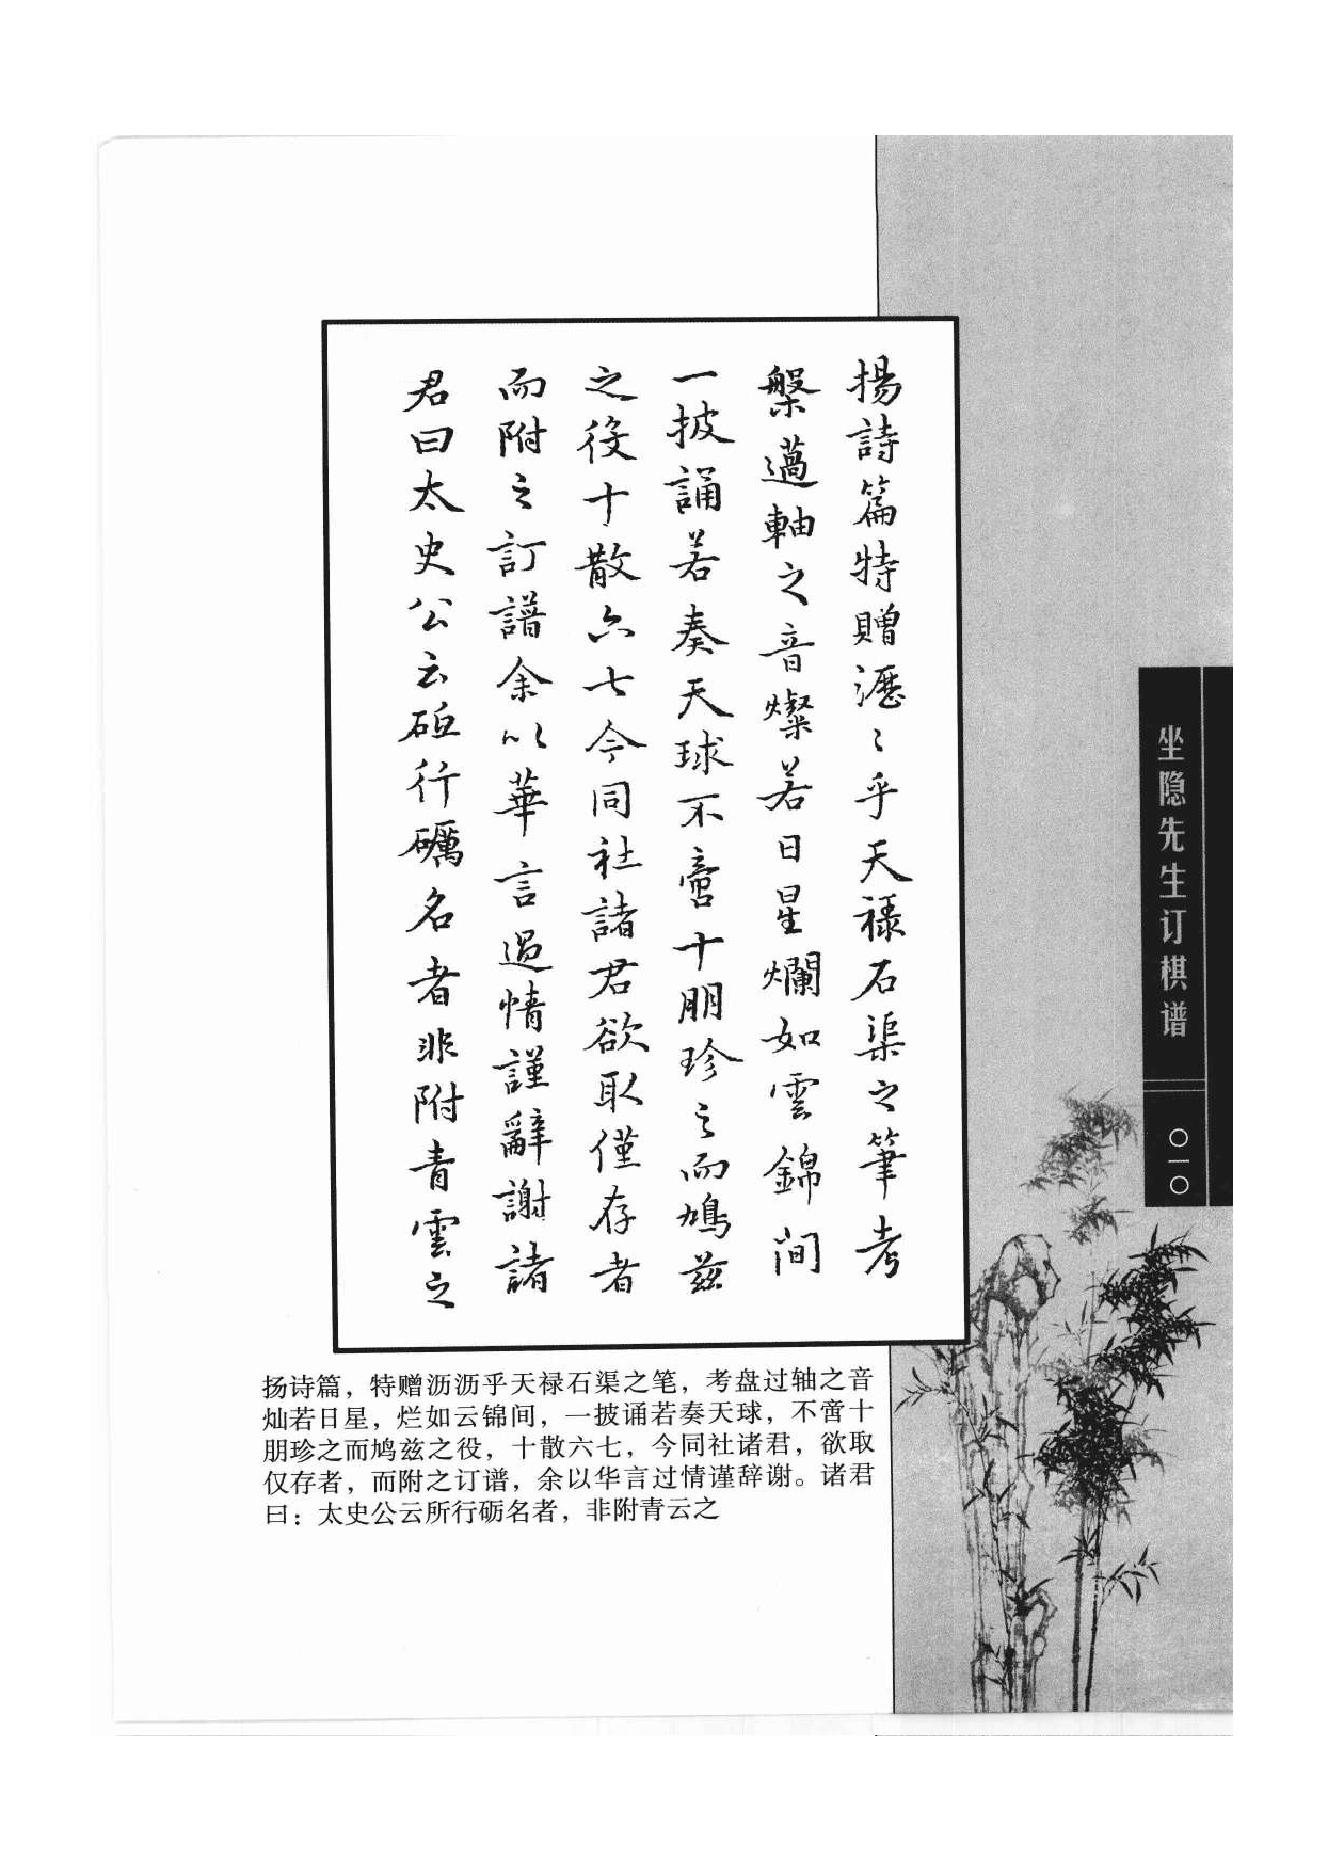 揚詩篇特贈瀝〻乎天祿石渠之筆考
槃薖軸之音燦若日星爛如雲錦間
一披誦若奏天球不啻十朋珍之而鳩兹
之役十散六七今同社諸君欲取僅存者
而附之訂譜余以華言過情謹辭謝諸
君曰太史公云砥行礪名者非附青雲之
扬诗篇，特赠沥沥乎天禄石渠之笔，考盘过轴之音
灿若日星，烂如云锦间，一披诵若奏天球，不啻十
朋珍之而鸠兹之役，十散六七，今同社诸君，欲取
仅存者，而附之订谱，余以华言过情谨辞谢。诸君
曰：太史公云所行砺名者，非附青云之
坐隐先生订棋谱
〇一〇